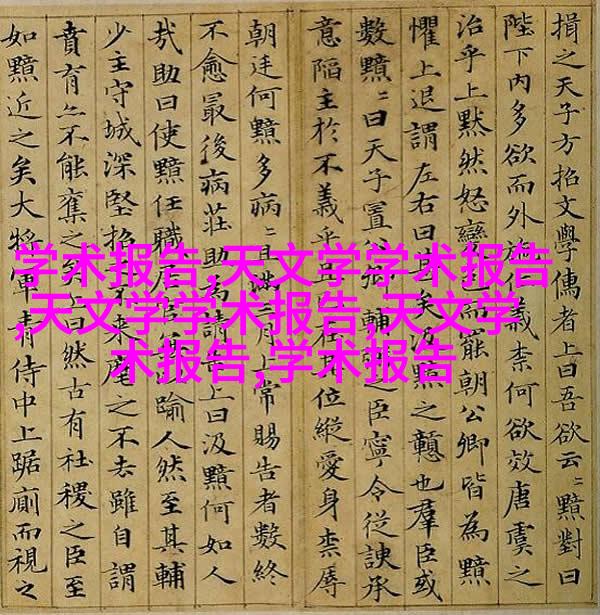 揖之天子方招文學儒者上曰吾欲云〻黯對曰
陛下內多欲而外施仁義柰何欲效唐虞之
治乎上黙然怒變而罷朝公卿皆為黯
懼上退謂左右曰甚矣汲黯之戇也羣臣或
數黯〻曰天子置輔之臣寧令從諛承
意陷主於不義乎且在其位縱愛身柰辱
朝廷何黯多病〻且滿三月上常賜告者數終
不愈最後病莊助為請告上曰汲黯何如人
哉助曰使黯任職居官踰人然至其輔
少主守城深堅招不來麾之不去雖自謂
賁育亦不能奪之矣上曰然古有社稷之臣至
如黯近之矣大將軍青侍中上踞廁而視之
学术报告,天文学学术报告
,天文学学术报告,天文学学
术报告,学术报告